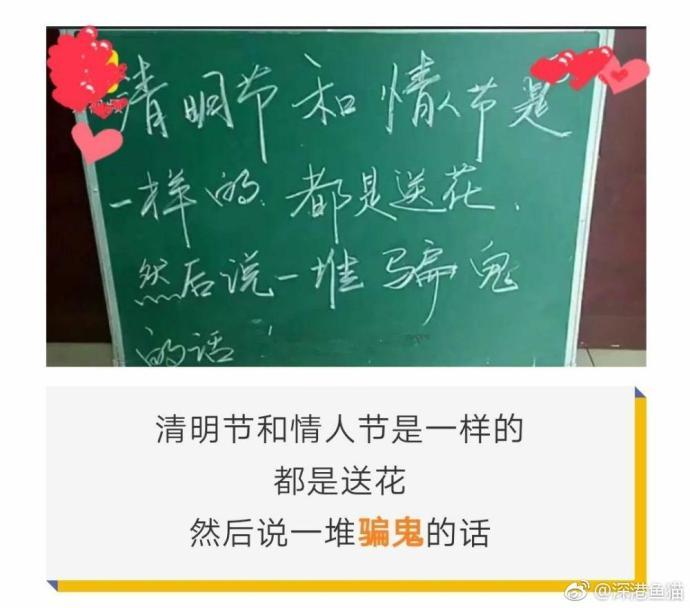 清明节和情人节是
一样的.都是送花、
然后说一堆骗鬼
的话
清明节和情人节是一样的
都是送花
然后说一堆骗鬼的话
@深港鱼猫